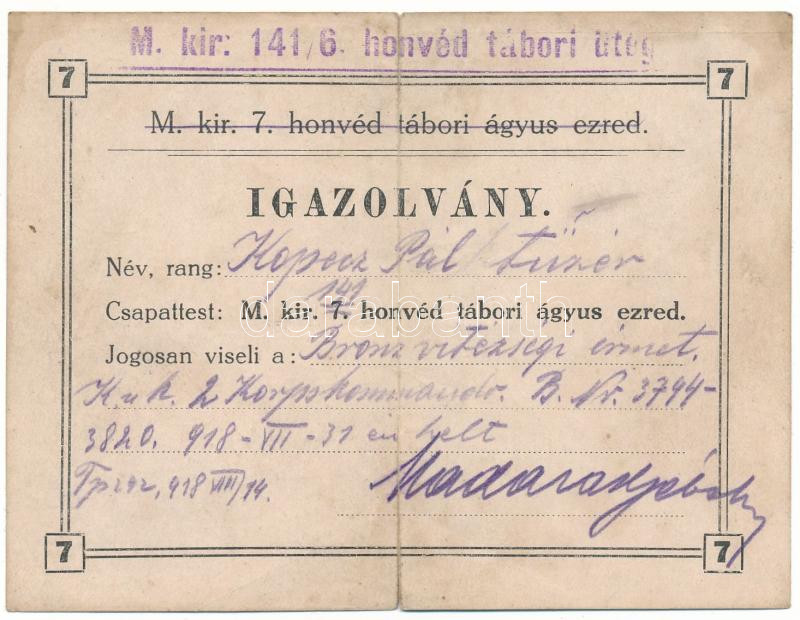 M. kir. 141/6. honvéd tábori üteg
7 7
M. kir. 7. honvéd tábori ágyus ezred.
IGAZOLVÁNY.
Név, rang: Kopecz Pál tüzér
141
Csapattest: M. kir. 7. honvéd tábori ágyus ezred.
darabanth
Jogosan viseli a: Bronz vitézségi érmet.
K.u.k. 2 Korpskommando. B. Nr. 3794-
3820. 918-VII-31 én kelt
918 VIII/14.
7 7